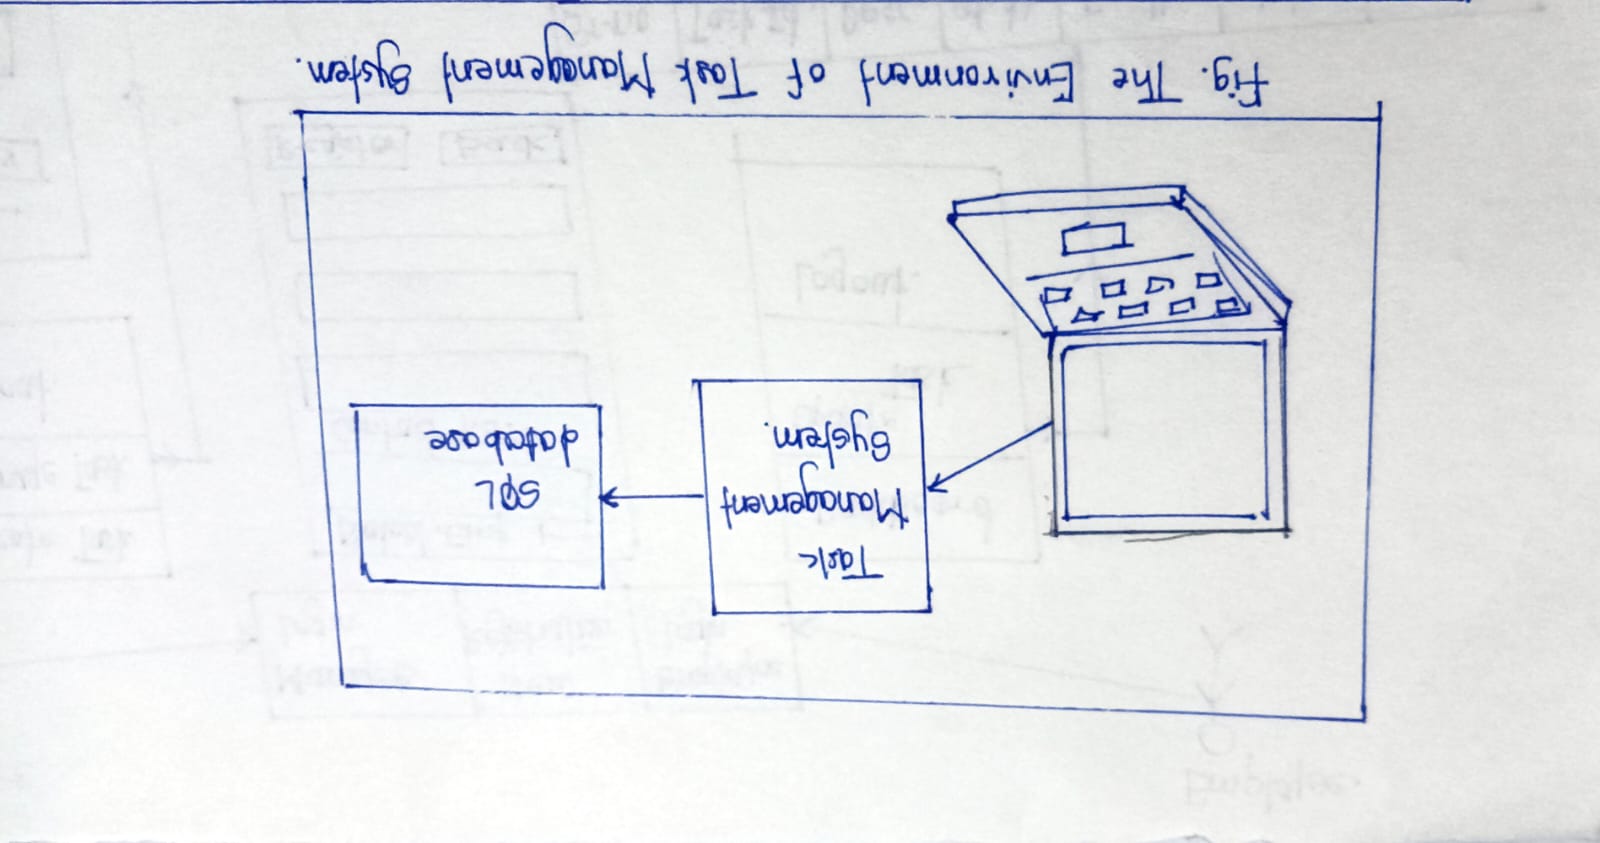 Task
Management
System.
SQL
database
Fig. The Environment of Task Management System.